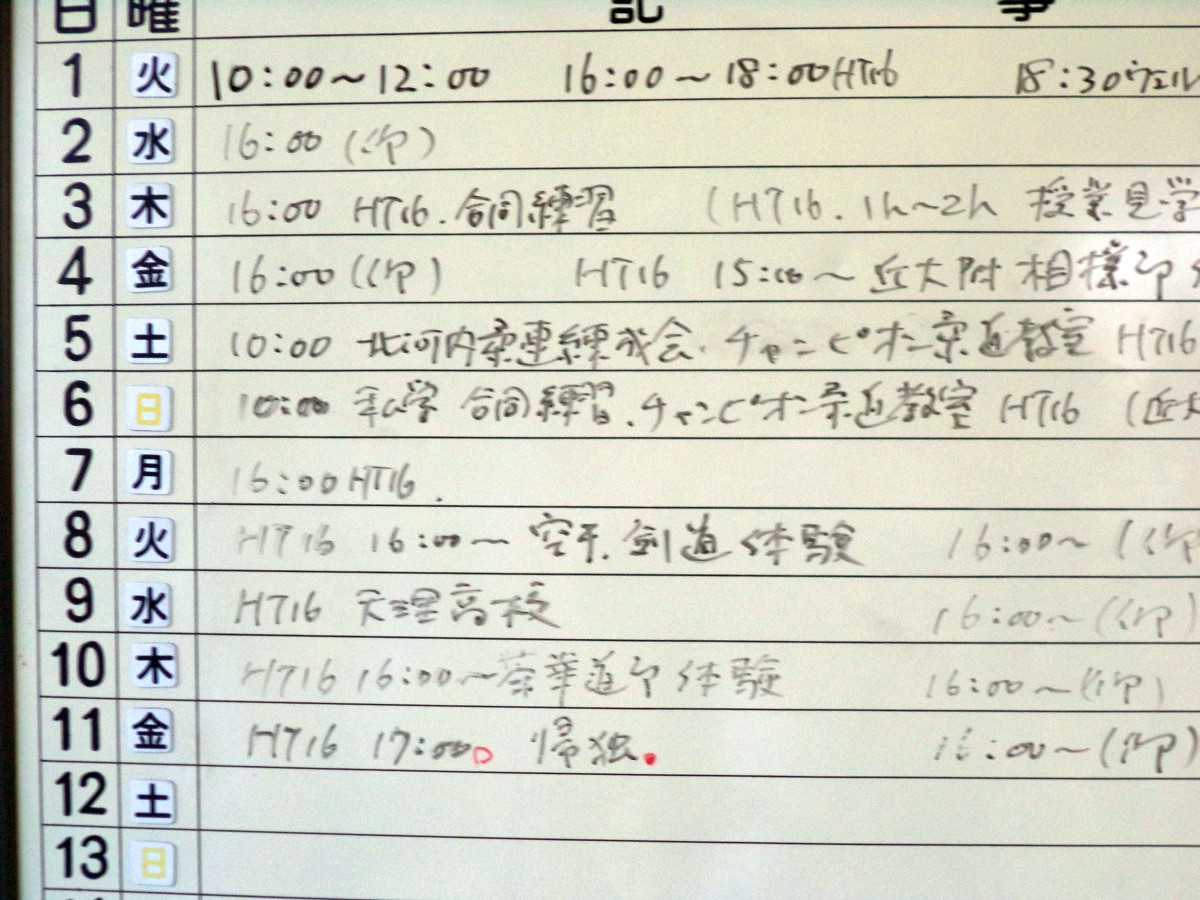 日 曜 記 事
1 火 10:00～12:00 16:00～18:00HT16 18:30ウェル
2 水 16:00 (仰)
3 木 16:00 HT16.合同練習 (HT16.1h～2h 授業見学
4 金 16:00 ( HT16 15:00～近大附 相撲部
5 土 10:00 北河内柔連練成会.チャンピオン柔道教室 HT16
6 日 10:00 私学 合同練習.チャンピオン柔道教室 HT16 (近大
7 月 16:00 HT16.
8 火 HT16 16:00～ 空手.剣道 体験 16:00～
9 水 HT16 天理高校 16:00～
10 木 HT16 16:00～茶華道部 体験 16:00～
11 金 HT16 17:00。帰独.  16:00～
12 土
13 日